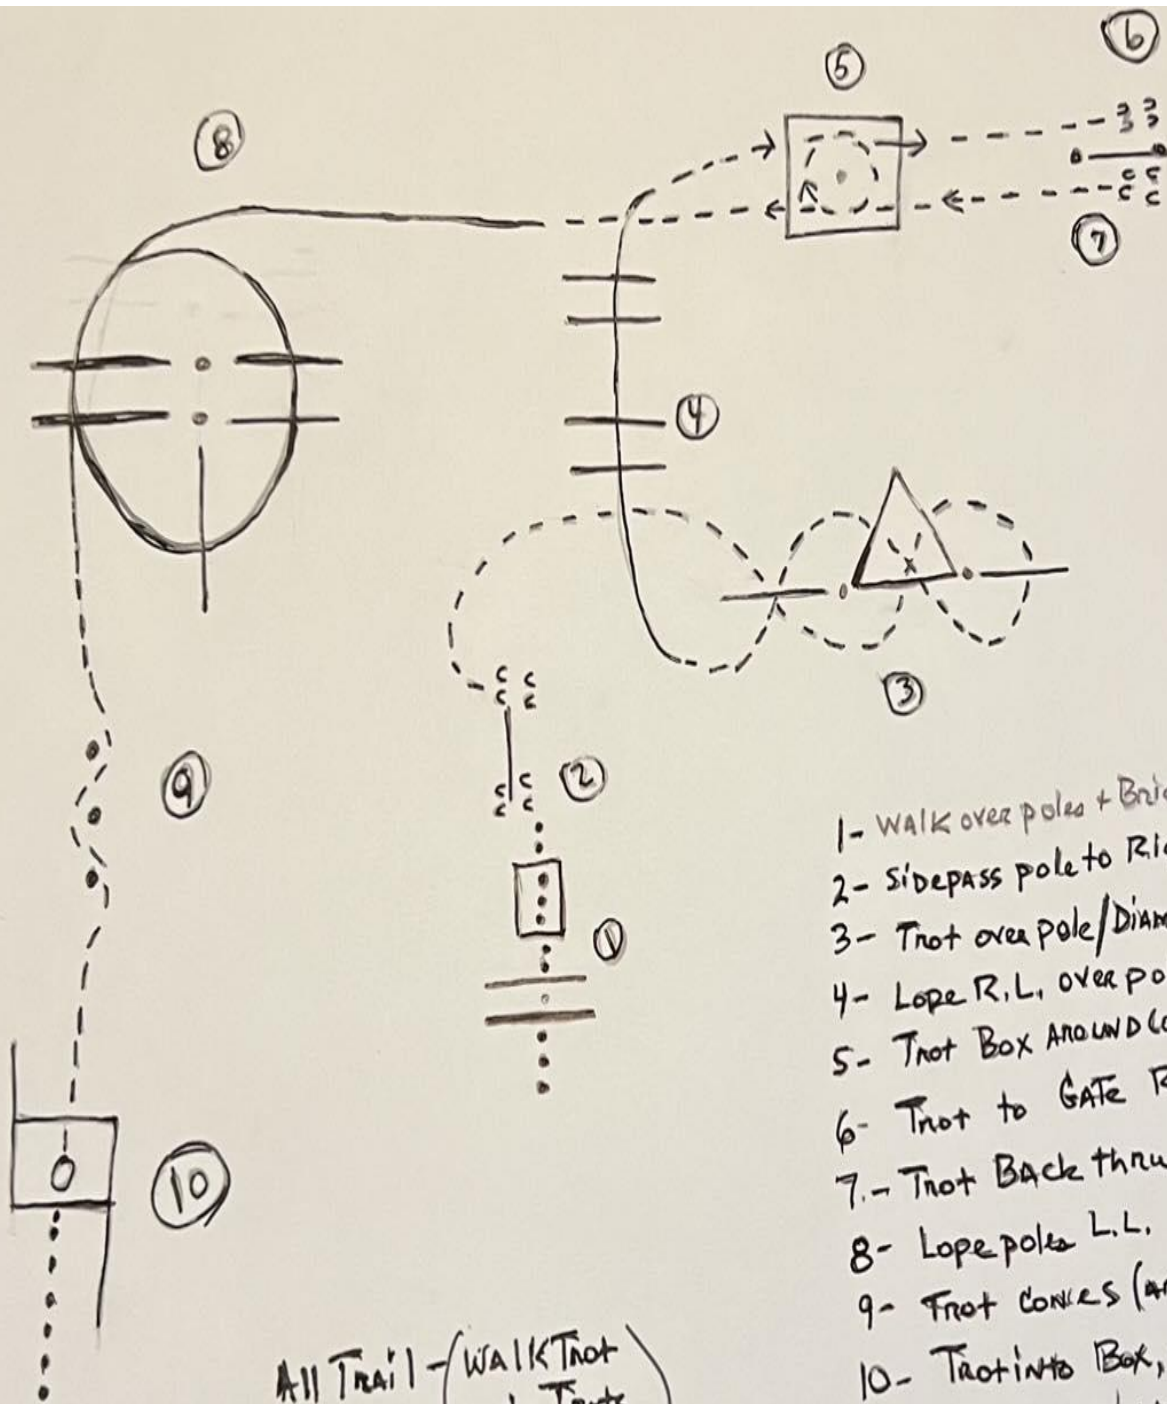 6
5
8
7
4
3
9
2
1
10
1- WALK over poles +
2- SidepASS pole to
3- Trot over pole/
4- Lope R.L. over
5- Trot Box AROUND
6- Trot to GATE
7.- Trot BAck thru
8- Lope poles L.L.
9- Trot CONES
10- Trot into Box,
All TRAil - (WALK Trot